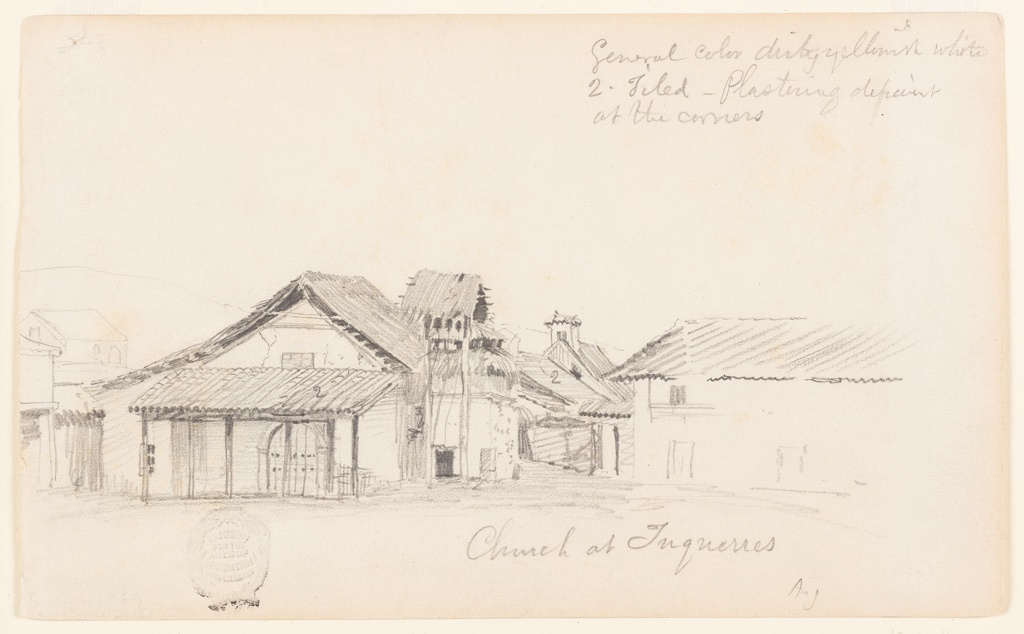 General color dirty yellowish white
2. Tiled - Plastering
at the corners
2
2
Church at Tuquerres
Aug